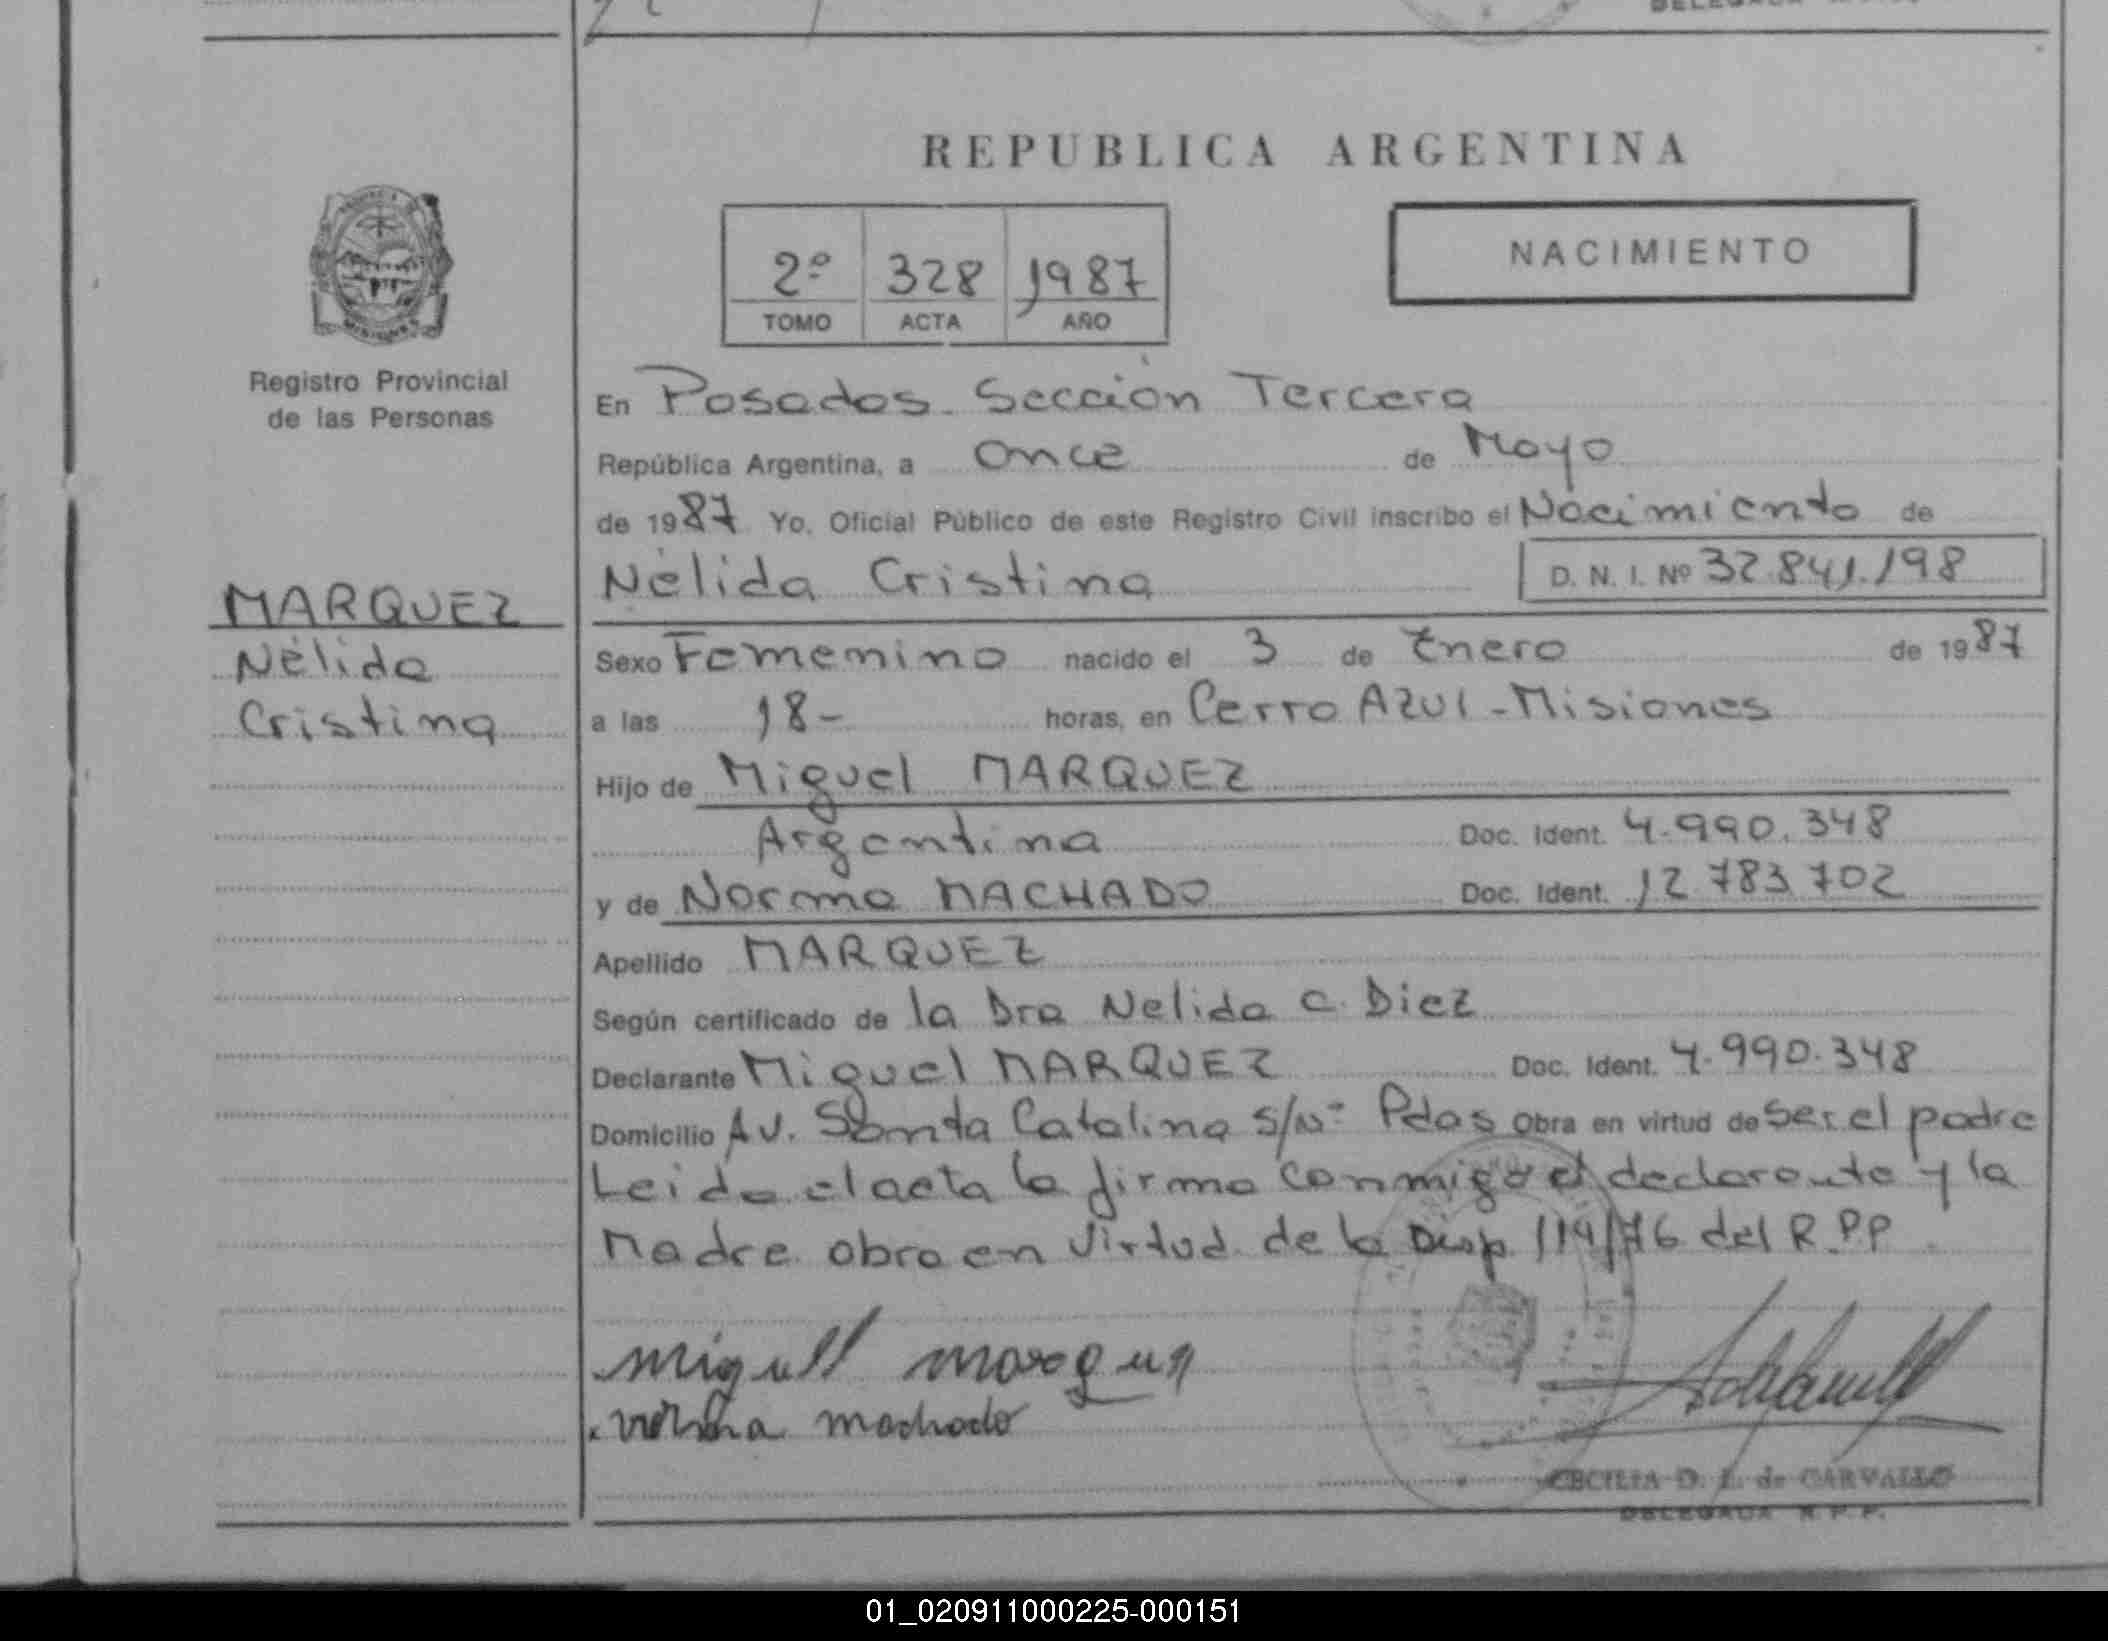 REPUBLICA ARGENTINA
2º 328 1987
TOMO ACTA AÑO
NACIMIENTO
Registro Provincial
de las Personas
MARQUEZ
Nélida
Cristina
En Posadas. Sección Tercera
República Argentina, a once de Mayo
de 1987 Yo, Oficial Público de este Registro Civil inscribo el Nacimiento de
Nélida Cristina D. N. I. Nº 32.841.198
Sexo Femenino nacido el 3 de Enero de 1987
a las 18- horas, en Cerro Azul - Misiones
Hijo de Miguel MARQUEZ
Argentina Doc. Ident. 4.990.348
y de Norma MACHADO Doc. Ident. 12.783.702
Apellido MARQUEZ
Según certificado de la Dra Nelida C. Diez
Declarante Miguel MARQUEZ Doc. Ident. 4.990.348
Domicilio Av. Santa Catalina S/Nº Pdas Obra en virtud de ser el padre
Leida el acta la firma conmigo el declarante y la
Madre obra en virtud de la Disp. 114/76 del R.P.P.
miguel marquez
norma machado
CECILIA D. L. de CARVALLO
DELEGADA R. P. P.
01_020911000225-000151